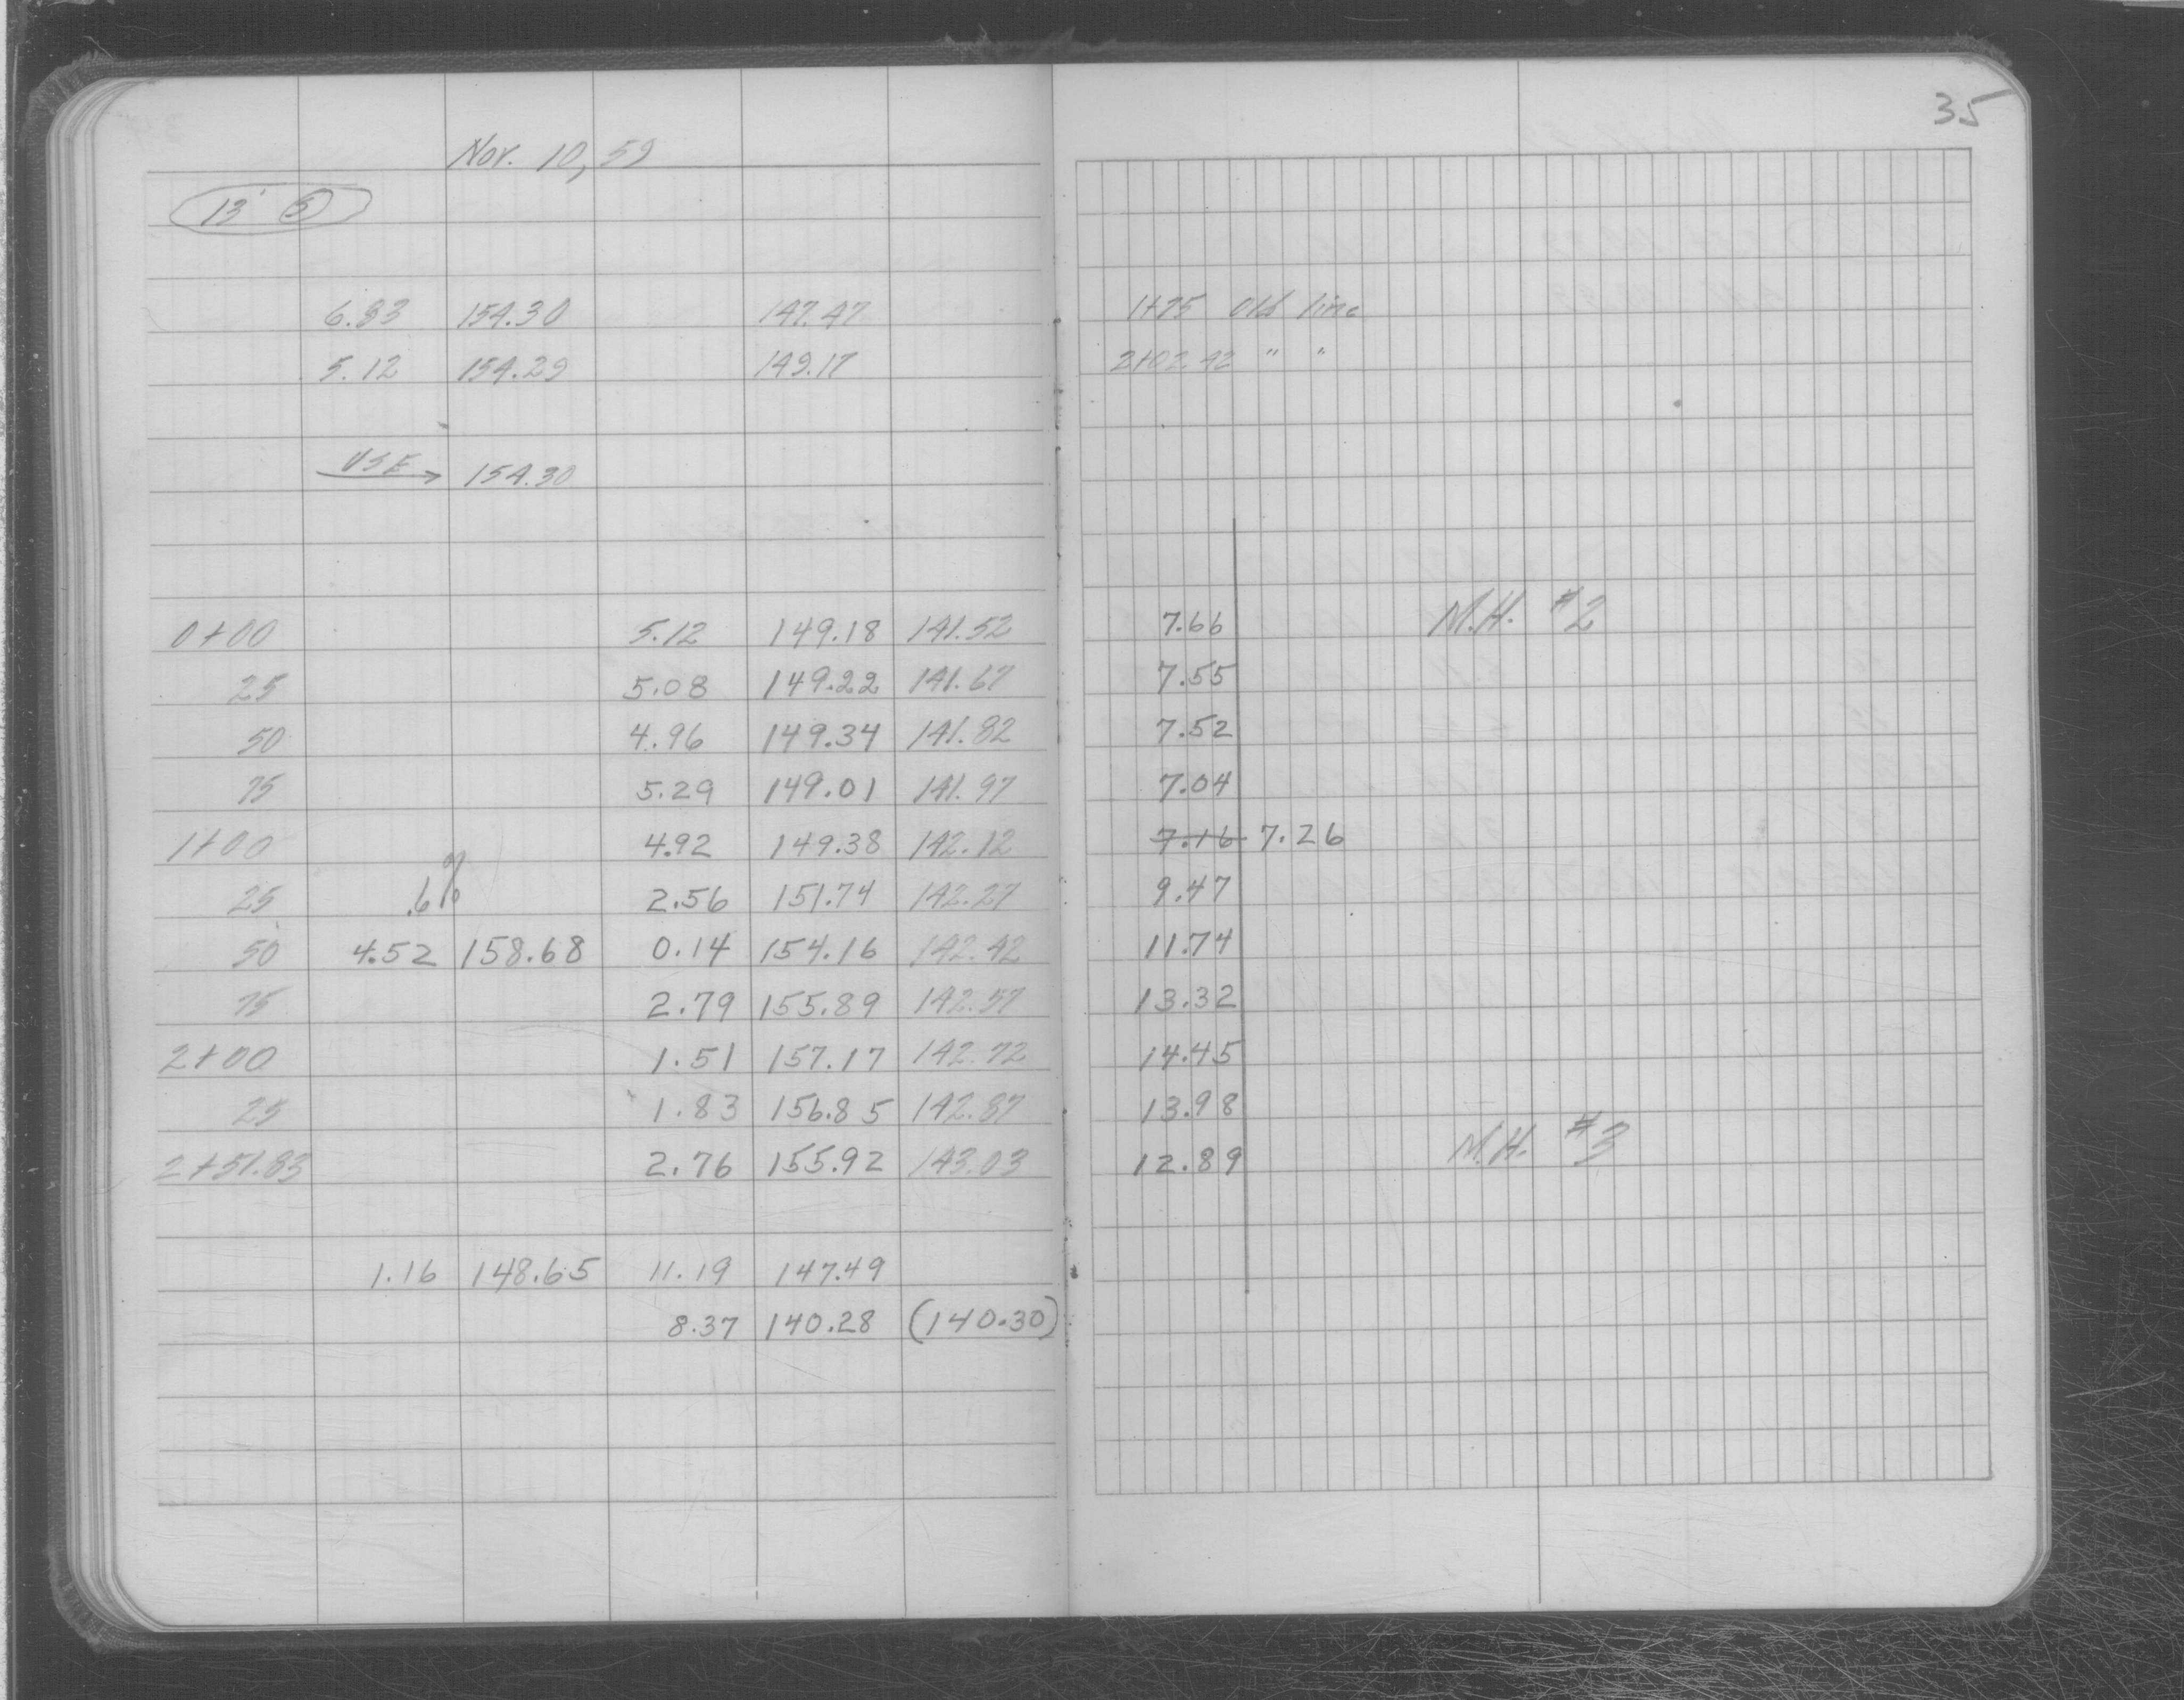 35
Nov. 10, 59
13' 5
6.83 154.30 147.47 1+75 old line
5.12 154.29 149.17 2+02.42 " "
USE → 154.30
0+00 5.12 149.18 141.52 7.66 M.H. #2
25 5.08 149.22 141.67 7.55
50 4.96 149.34 141.82 7.52
75 5.29 149.01 141.97 7.04
1+00 4.92 149.38 142.12 7.16 7.26
25 .6% 2.56 151.74 142.27 9.47
50 4.52 158.68 0.14 154.16 142.42 11.74
75 2.79 155.89 142.57 13.32
2+00 1.51 157.17 142.72 14.45
25 1.83 156.85 142.87 13.98
2+51.83 2.76 155.92 143.03 12.89 M.H. #3
1.16 148.65 11.19 147.49
8.37 140.28 (140.30)